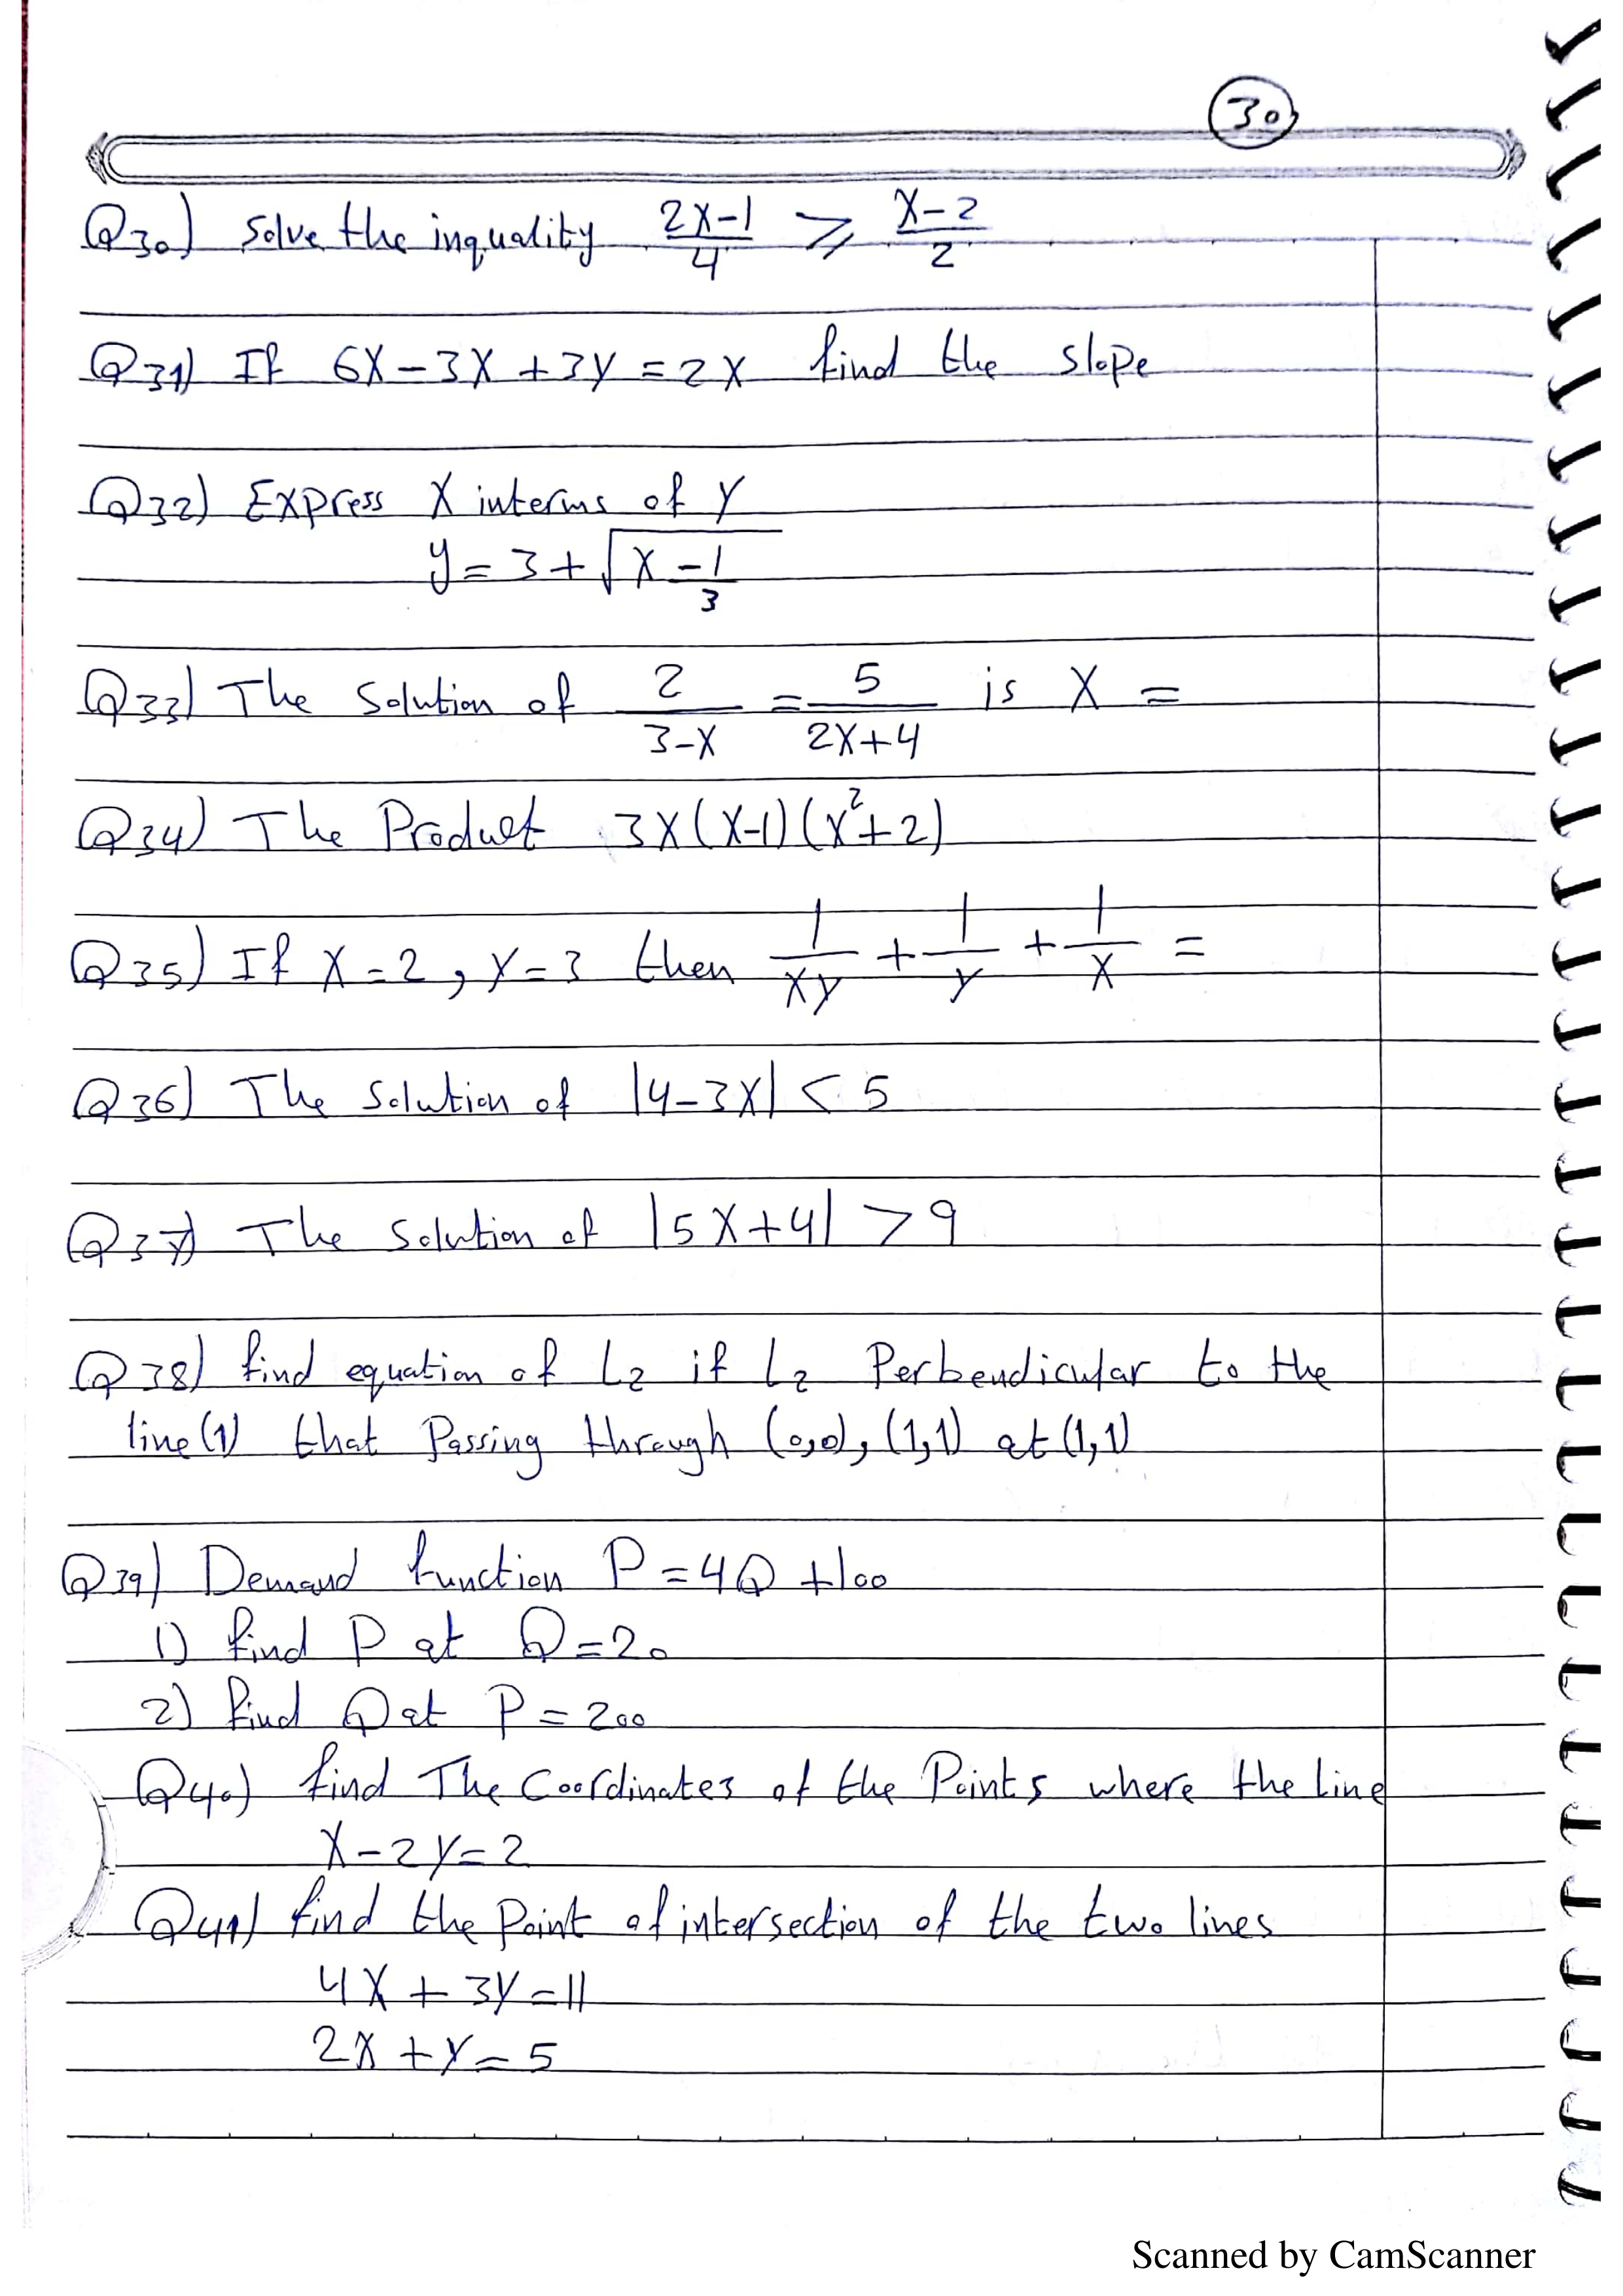 30
Q30) Solve the inquality (2X-1)/4 ≥ (X-2)/2
Q31) If 6X-3X+3Y=2X find the slope
Q32) Express X interms of Y
y=3+√(X -1/3)
Q33) The Solution of 2/(3-X) = 5/(2X+4) is X =
Q34) The Product 3X(X-1)(X²+2)
Q35) If X=2, Y=3 then 1/XY + 1/Y + 1/X =
Q36) The Solution of |4-3X| < 5
Q37) The Solution of |5X+4| > 9
Q38) find equation of L2 if L2 Perbendicular to the
line(1) that Passing through (0,0), (1,1) at (1,1)
Q39) Demand function P=4Q+100
1) find P at Q=20
2) find Q at P=200
Q40) find The Coordinates of the Points where the line
X-2Y=2
Q41) find the Point of intersection of the two lines
4X+3Y=11
2X+Y=5
Scanned by CamScanner